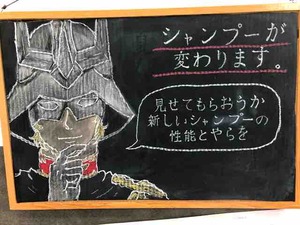 シャンプーが
変わります。
見せてもらおうか
新しいシャンプーの
性能とやらを